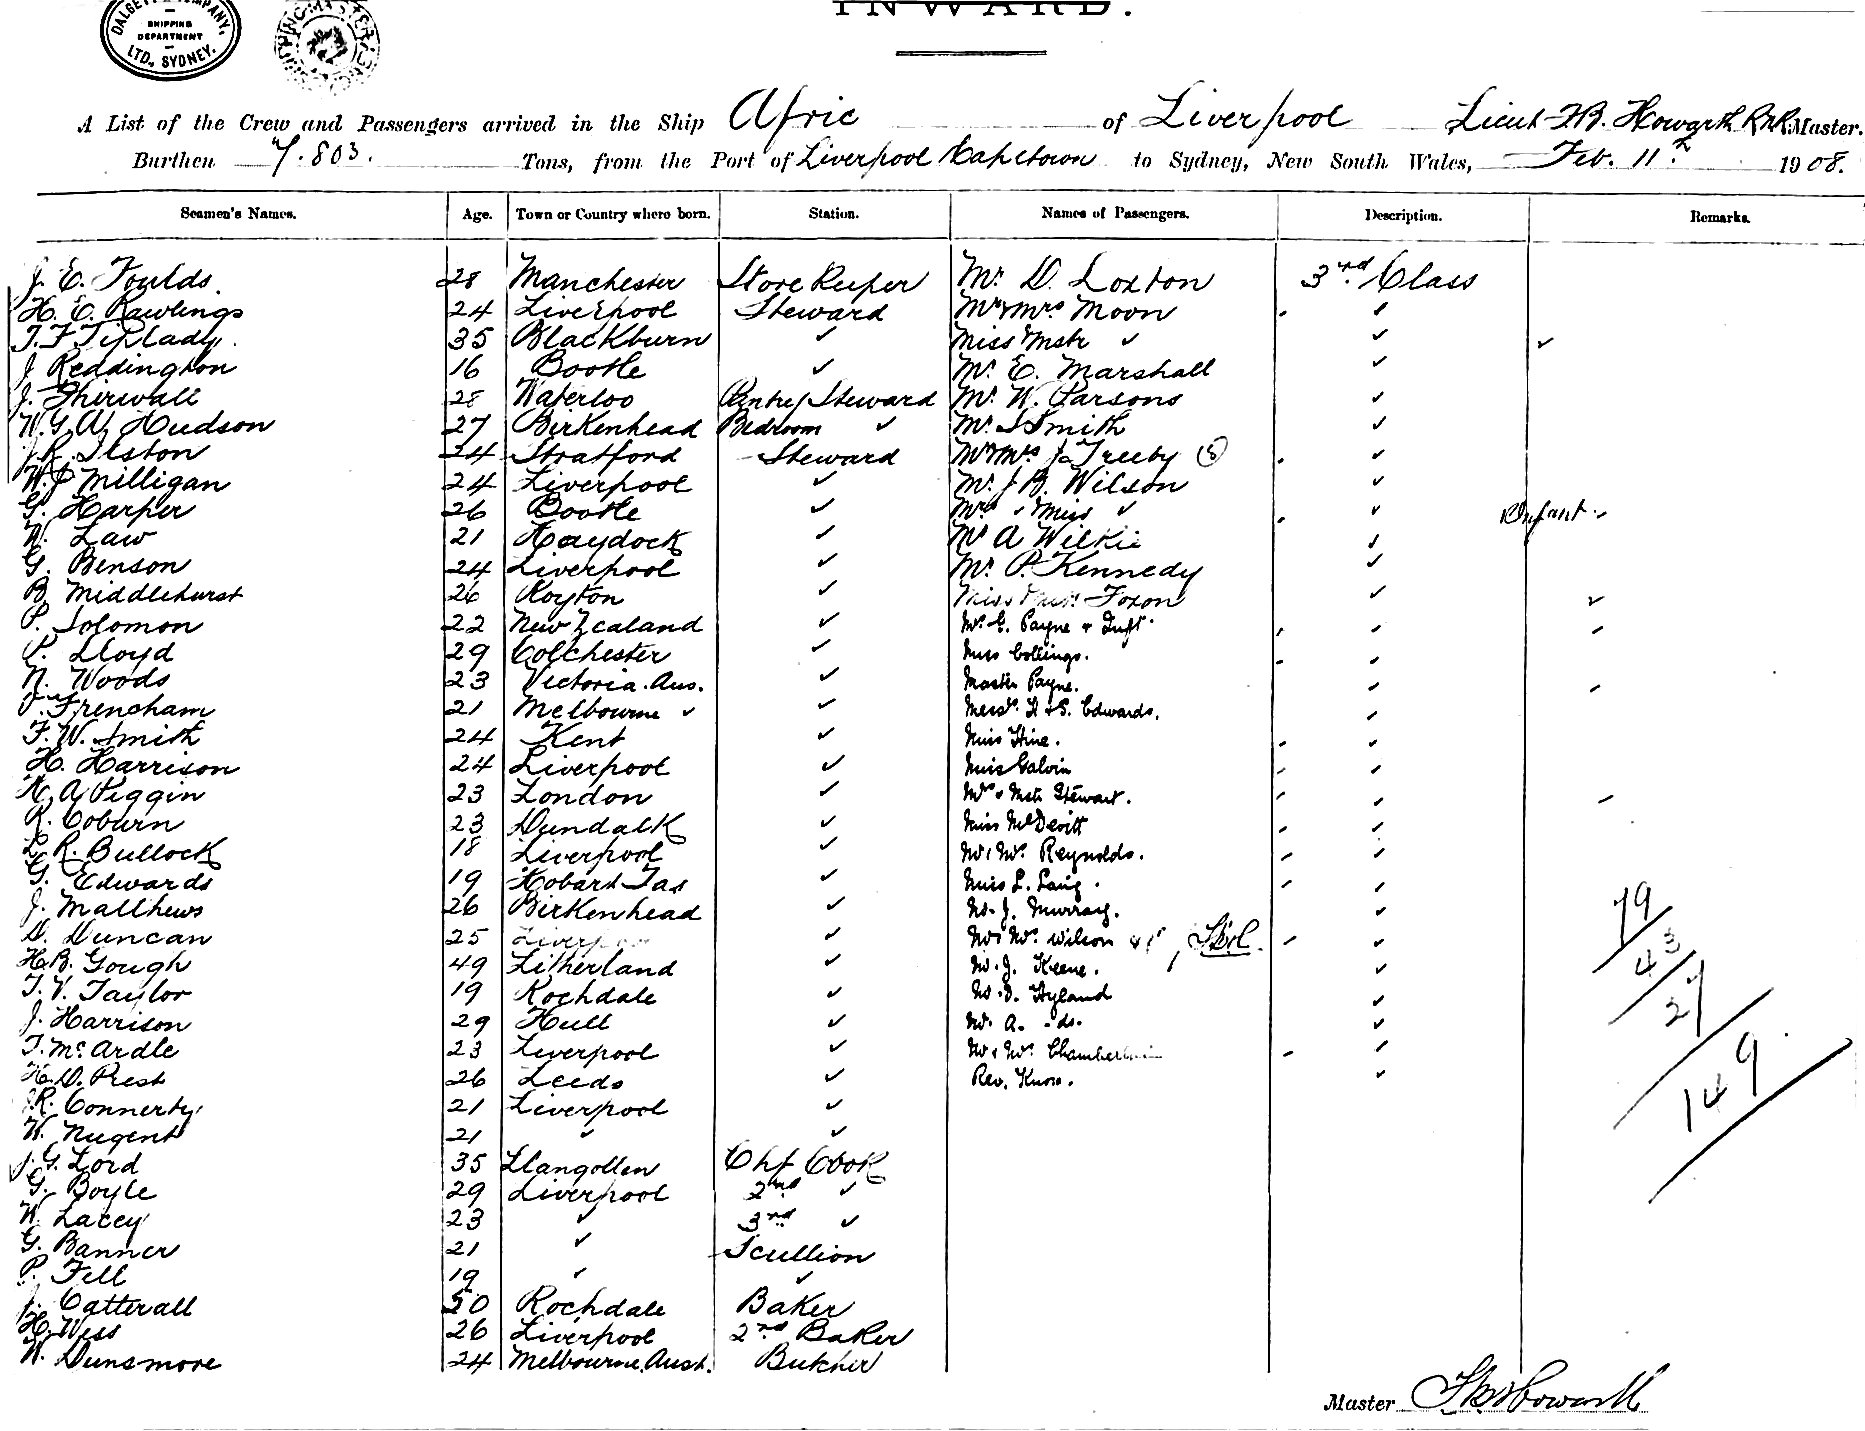 DALGETY & COMPANY,
SHIPPING
DEPARTMENT
LTD., SYDNEY.
INWARD.
A List of the Crew and Passengers arrived in the Ship Afric of Liverpool Lieut F.B. Howarth R.N.R. Master.
Burthen 7.803. Tons, from the Port of Liverpool Capetown to Sydney, New South Wales, Feb. 11th 1908.
Seamen's Names. Age. Town or Country where born. Station. Names of Passengers. Description. Remarks.
J. E. Foulds. 28 Manchester Store Keeper Mr. D. Loxton 3rd Class
H. E. Rawlings 24 Liverpool Steward Mr & Mrs Moon ✓
T. F. Tiplady. 35 Blackburn ✓ Miss & Mstr ✓ ✓ ✓
J Reddington 16 Bootle ✓ Mr. E. Marshall ✓
J. Shirwall 28 Waterloo Pantry Steward Mr. W. Parsons ✓
W. G. A. Hudson 27 Birkenhead Bedroom ✓ Mr. S Smith ✓
J. R. Ilston 24 Stratford Steward Mr & Mrs J. Treeby (8) ✓
W. J Milligan 24 Liverpool ✓ Mr. J B. Wilson ✓
G. Harper 26 Bootle ✓ Mrs ✓ Miss ✓ ✓ Infant ✓
W. Law 21 Haydock ✓ Mr A Wilkie ✓
G. Benson 24 Liverpool ✓ Mr. P. Kennedy ✓
B. Middlehurst 26 Royton ✓ Miss Foxon ✓ ✓
P. Solomon 22 New Zealand ✓ Mr. G. Payne & Inft. ✓ ✓
P. Lloyd 29 Colchester ✓ Miss Collings. ✓
N. Woods 23 Victoria. Aus. ✓ Master Payne. ✓ ✓
Frencham 21 Melbourne ✓ ✓ Messrs. H & S. Edwards. ✓
F. W. Smith 24 Kent ✓ Miss Hine. ✓
H. Harrison 24 Liverpool ✓ Miss Galvin ✓
H. A Piggin 23 London ✓ Mrs & Mstr Stewart. ✓ ✓
R. Coburn 23 Dundalk ✓ Miss McDevitt ✓
L. R. Bullock 18 Liverpool ✓ Mr & Mrs Reynolds. ✓
G. Edwards 19 Hobart Tas ✓ Miss L. Laing. ✓
J. Matthews 26 Birkenhead ✓ Mr. J. Murray. ✓
D. Duncan 25 Liverpool ✓ Mr & Mrs Wilson ✓
H. B. Gough 49 Litherland ✓ Mr. J. Keene. ✓
T. V. Taylor 19 Rochdale ✓ Mr. D. Hyland ✓
J. Harrison 29 Hull ✓ Mr. A. - do. ✓
T. McArdle 23 Liverpool ✓ Mr & Mrs Chamberlain ✓
H. D. Prest 26 Leeds ✓ Rev. Knox. ✓
R. Connerty 21 Liverpool ✓
W. Nugent 21 ✓ ✓
J. G. Lord 35 Llangollen Chf Cook
G. Boyle 29 Liverpool 2nd ✓
W. Lacey 23 ✓ 3rd ✓
G. Banner 21 ✓ Scullion
P. Fell 19 ✓ ✓
J. Catterall 50 Rochdale Baker
H. Wess 26 Liverpool 2nd Baker
W. Dunsmore 24 Melbourne. Aust. Butcher
79
43
27
149
Master F B Howarth